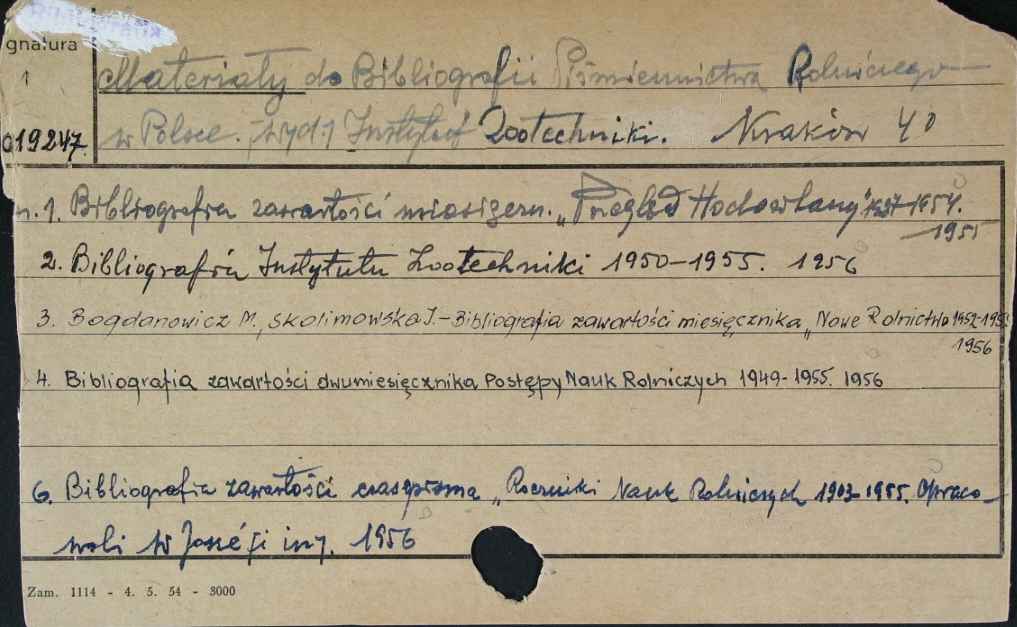 gnatura
1
019247.
Materiały do Bibliografii Piśmiennictwa Rolniczego
w Polsce. [wyd] Instytut Zootechniki. Kraków 4°
n. 1. Bibliografia zawartości "Przegląd Hodowlany" 1954.
1955
2. Bibliografia Instytutu Zootechniki 1950-1955. 1956
3. Bogdanowicz M., Skolimowska J. - Bibliografia zawartości miesięcznika „Nowe Rolnictwo 1952-195
1956
4. Bibliografia zawartości dwumiesięcznika Postępy Nauk Rolniczych 1949-1955. 1956
6. Bibliografia zawartości czasopisma „Roczniki Nauk Rolniczych 1903-1955. Opraco-
wali W i inj. 1956
Zam. 1114 - 4. 5. 54 - 3000